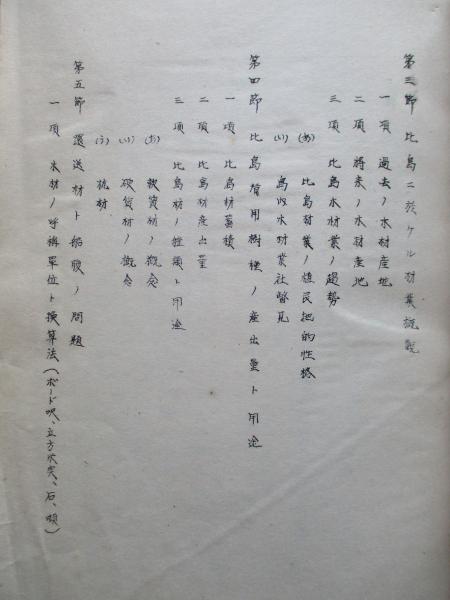 第三節 比島ニ於ケル材業概観
一項 過去ノ木材産地
二項 将来ノ木材産地
三項 比島木材業ノ趨勢
(あ) 比島材業ノ植民地的性格
(い) 島内木材業社瞥見
第四節 比島有用樹種ノ産出量ト用途
一項 比島材蓄積
二項 比島材産出量
三項 比島材ノ種類ト用途
(あ) 軟質材ノ概念
(い) 硬質材ノ概念
(う) 杭材
第五節 還送材ト船腹ノ問題
一項 木材ノ呼稱單位ト換算法(ボード呎、立方米突、石、噸)